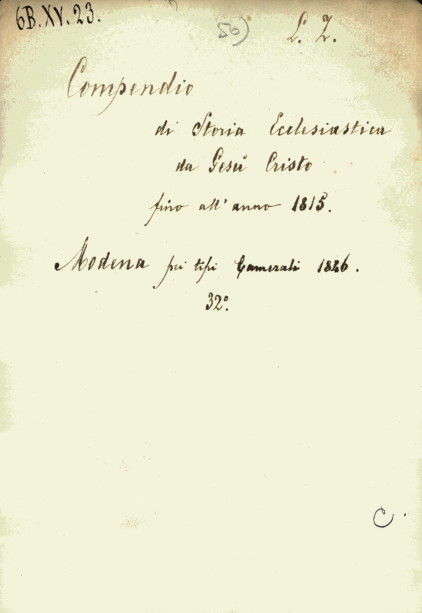 6B.XV.23.
50)
L. Z.
Compendio
di Storia Ecclesiastica
da Gesù Cristo
fino all'anno 1815.
Modena pei tipi Camerali 1826.
32°.
C.